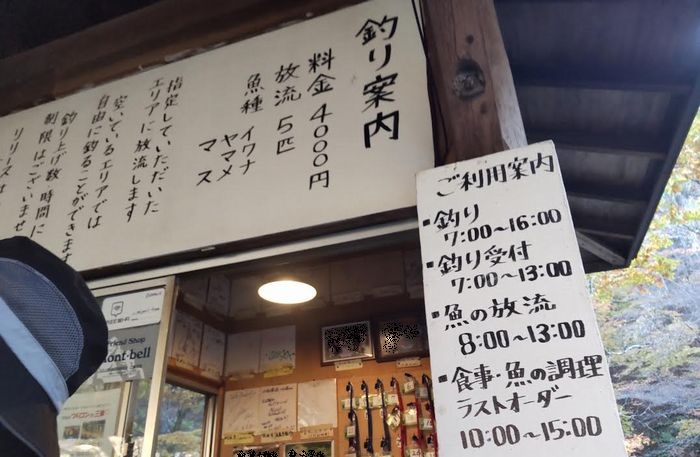 釣り案内
料金 4000円
放流 5匹
魚種 イワナ
ヤマメ
マス
指定していただいた
エリアに放流します
空いているエリアでは
自由に釣ることができます
釣り上げ数時間に
制限はございませ
リリースは
ご利用案内
・釣り
7:00~16:00
・釣り受付
7:00~13:00
・魚の放流
8:00~13:00
・食事・魚の調理
ラストオーダー
10:00~15:00
Friend Shop
mont-bell